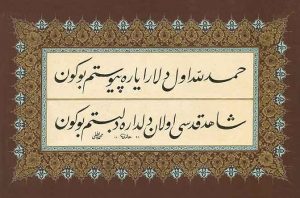 حمد لله اول دلارا یاره پیوستم بوکون
شاهد قدسی اولان دلداره دلبستم بوکون